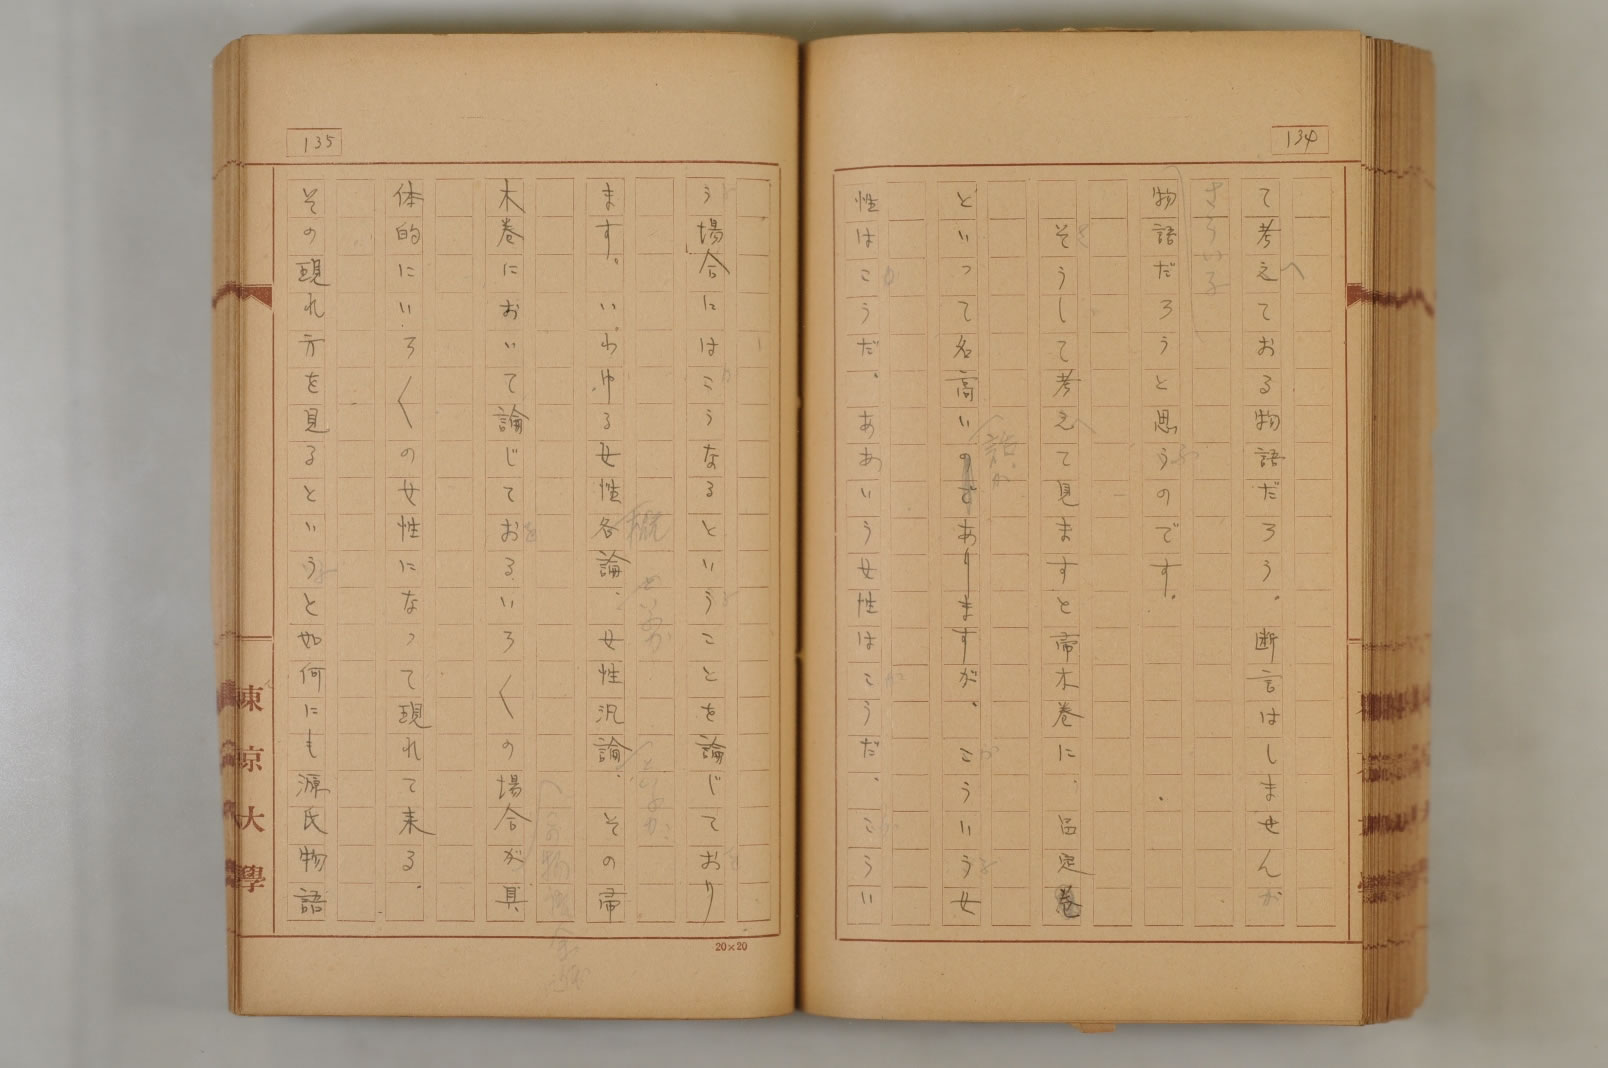 134
て考えておる物語だろう。断言はしませんが
物語だろうと思うのです。
そうして考えて見ますと帚木巻に、品定
といって名高いのすありますが、こういう女
性はこうだ。ああいう女性はこうだ、こうい
135
う場合にはこうなるということを論じており
ます。いわゆる女性各論、女性汎論、その帚
木巻において論じておるいろ〱の場合が具
体的にいろ〱の女性になって現れて来る。
その現れ方を見るというと如何にも源氏物語
東京大學
20×20